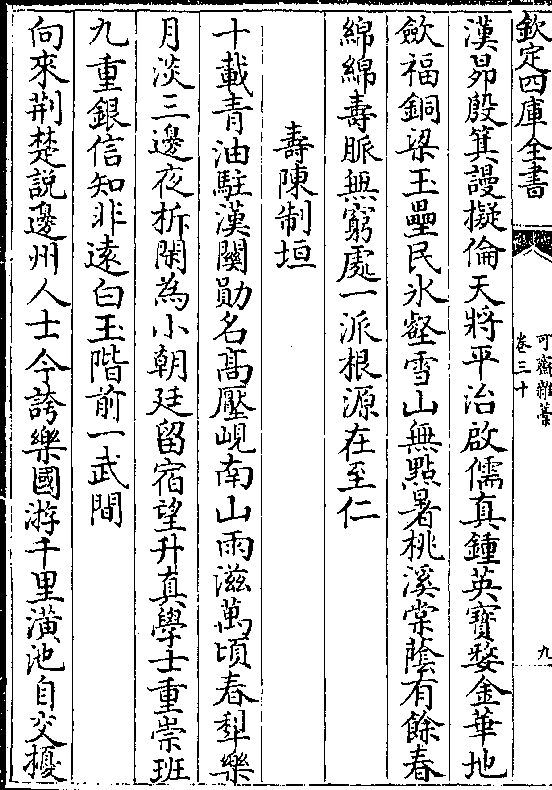 欽定四庫全書
可齋雜藁
卷三十
九
漢昴殷箕謾擬倫天將平治啟儒真鍾英寶婺金華地
歛福銅梁玉壘民氷壑雪山無點暑桃溪棠蔭有餘春
綿綿壽脈無窮處一派根源在至仁
壽陳制垣
十載青油駐漢關勛名髙壓峴南山雨滋萬頃春犁樂
月淡三邊夜柝閑為小朝廷留宿望升真學士重崇班
九重銀信知非遠白玉階前一武間
向來荆楚説邊州人士今誇樂國游千里潢池自交擾